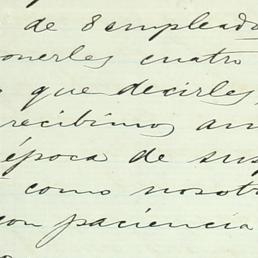 de 8 empleado
onerles cuatro
que decirles,
recibimos an
época de sus
como nosotr
con paciencia